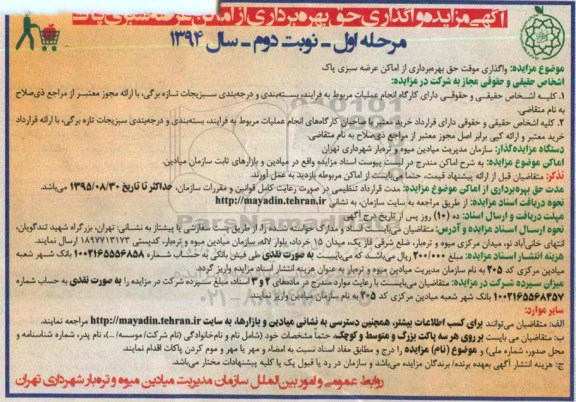 آگهی مزایده واگذاری حق بهره‌برداری از اماکن عرضه سبزی پاک
مرحله اول ـ نوبت دوم ـ سال ۱۳۹۴
موضوع مزایده: واگذاری موقت حق بهره‌برداری از اماکن عرضه سبزی پاک
اشخاص حقیقی و حقوقی مجاز به شرکت در مزایده:
۱. کلیه اشخاص حقیقی و حقوقی دارای کارگاه انجام عملیات مربوط به فرایند، بسته‌بندی و درجه‌بندی سبزیجات تازه برگی، با ارائه مجوز معتبر از مراجع ذی‌صلاح
به نام متقاضی.
۲. کلیه اشخاص حقیقی و حقوقی دارای قرارداد خرید معتبر با صاحبان کارگاه‌های انجام عملیات مربوط به فرایند، بسته‌بندی و درجه‌بندی سبزیجات تازه برگی، با ارائه قرارداد
خرید معتبر و ارائه کپی برابر اصل مجوز معتبر از مراجع ذی‌صلاح به نام متقاضی.
دستگاه مزایده‌گذار: سازمان مدیریت میادین میوه و تره‌بار شهرداری تهران
اماکن موضوع مزایده: به شرح اماکن مندرج در لیست پیوست اسناد مزایده واقع در میادین و بازارهای ثابت سازمان میادین.
تذکر: متقاضیان قبل از ارائه پیشنهاد قیمت، حتماً می‌بایست از اماکن مربوطه بازدید به عمل آورند.
مدت حق بهره‌برداری از اماکن موضوع مزایده: مدت قرارداد تنظیمی در صورت رعایت کامل قوانین و مقررات سازمان، حداکثر تا تاریخ ۱۳۹۵/۰۸/۳۰
نحوه دریافت اسناد مزایده: از طریق مراجعه به سایت سازمان، به نشانی http://mayadin.tehran.ir
مهلت دریافت و ارسال اسناد: ده (۱۰) روز پس از تاریخ درج آگهی
نحوه ارسال اسناد مزایده و آدرس: متقاضیان می‌بایست اسناد و مدارک خواسته شده را، از طریق پست سفارشی یا پیشتاز به نشانی: تهران، بزرگراه شهید تندگویان،
انتهای خانی‌آباد نو، میدان مرکزی میوه و تره‌بار، ضلع شرقی فاز یک، میدان ۱۵ خرداد، بلوار لاله، سازمان میادین میوه و تره‌بار، کدپستی ۱۸۹۷۷۱۳۱۷۳ ارسال نمایند.
هزینه انتشار اسناد مزایده: مبلغ ۲۰۰/۰۰۰ ریال می‌باشد که می‌بایست به صورت نقدی طی فیش بانکی به حساب شماره ۱۰۰۲۱۶۵۵۵۶۸۵۸ بانک شهر شعبه
میادین مرکزی کد ۲۰۵ به نام سازمان مدیریت میادین میوه و تره‌بار به عنوان هزینه انتشار اسناد مزایده واریز گردد.
میزان سپرده شرکت در مزایده: متقاضیان می‌بایست با رعایت موارد مندرج در ماده‌های ۲ و ۳ اسناد، مبلغ سپرده شرکت در مزایده را به صورت نقدی به حساب شماره
۱۰۰۲۱۶۵۵۶۸۳۵۷ بانک شهر شعبه میادین مرکزی کد ۲۰۵ به نام سازمان میادین واریز نمایند.
سایر موارد:
الف: متقاضیان می‌توانند برای کسب اطلاعات بیشتر، همچنین دسترسی به نشانی میادین و بازارها، به سایت http://mayadin.tehran.ir مراجعه نمایند.
ب: متقاضیان می بایست بر روی هر سه پاکت بزرگ و متوسط و کوچک، حتماً مشخصات خود (شامل نام و نام‌خانوادگی (نام شرکت/ موسسه/ ...)، نام پدر، شماره شناسنامه و
محل صدور، شماره ملی) و موضوع (نام) مزایده را درج و مطابق مفاد اسناد نسبت به امضاء و مهر یا مهر و موم کردن پاکات اقدام نمایند.
ج: هزینه انتشار آگهی بعهده برنده/ برندگان مزایده می‌باشد و سازمان در رد یا قبول یک یا کلیه پیشنهادات مختار می‌باشد.
روابط عمومی و امور بین‌الملل سازمان مدیریت میادین میوه و تره‌بار شهرداری تهران